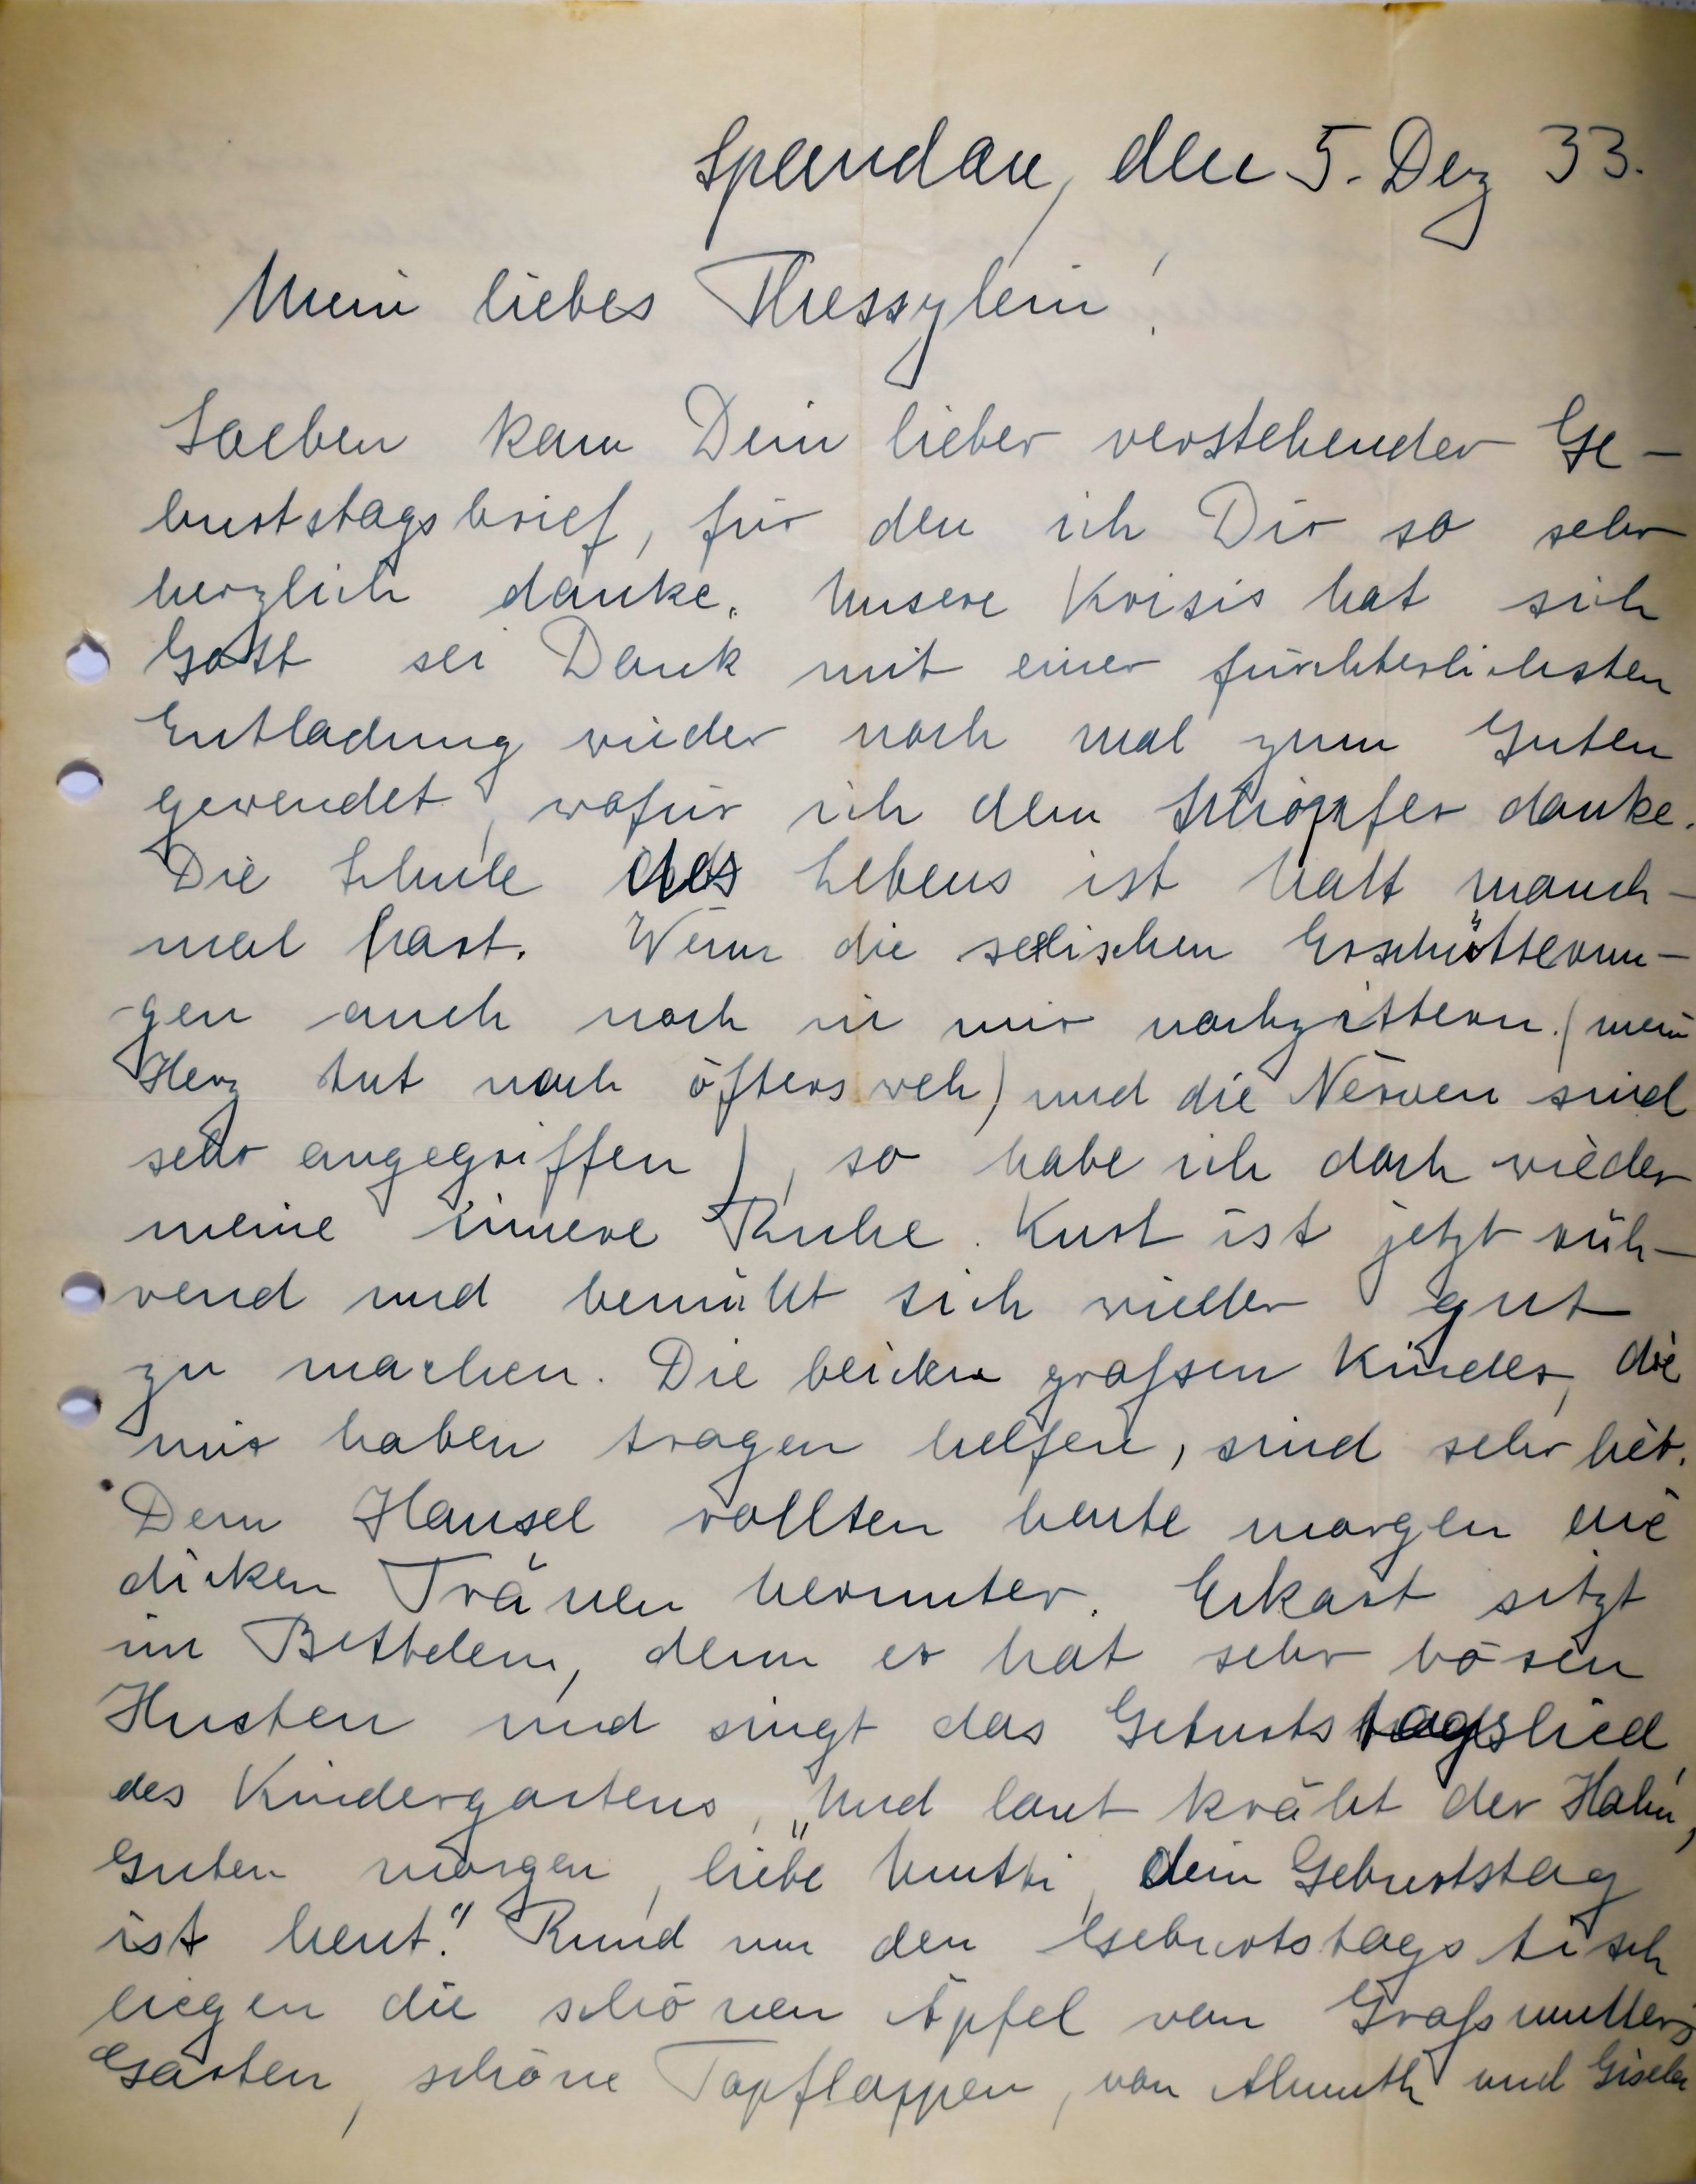 Spandau, den 5. Dez 33.
Mein liebes Thessylein!
Soeben kam Dein lieber verstehender Ge-
burtstagsbrief, für den ich Dir so sehr
herzlich danke. Unsere Krisis hat sich
Gott sei Dank mit einer fürchterlichsten
Entladung wieder noch mal zum Guten
gewendet, wofür ich dem Schöpfer danke.
Die Schule des Lebens ist halt manch-
mal hart. Wenn die seelischen Erschütterun-
-gen auch noch in mir nachzittern (mein
Herz tut noch öfters weh) und die Nerven sind
sehr angegriffen), so habe ich doch wieder
meine innere Ruhe. Kurt ist jetzt rüh-
rend und bemüht sich wieder gut
zu machen. Die beiden großen Kinder, die
mir haben tragen helfen, sind sehr lieb.
Dem Hansel rollten heute morgen die
dicken Tränen herunter. Ekart sitzt
im Bettelein, denn er hat sehr bösen
Husten und singt das Geburtstagslied
des Kindergartens, „Und laut kräht der Hahn,
Guten morgen, liebe Mutti, dein Geburtstag
ist heut." Rund um den Geburtstagstisch
liegen die schönen Äpfel von Großmutters
Garten, schöne Topflappen, von Almuth und Gisela